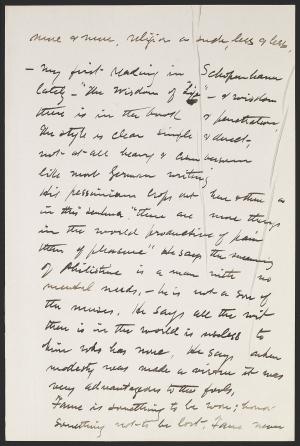 more & more, religion as such, less & less.
- My first reading in Schopenhauer
lately - "The Wisdom of Life" - & wisdom
there is in the book & penetration.
The style is clear simple & direct,
not at all heavy & cumbersome
like most German writing
His pessimism crops out here & there as
in this sentence. "There are more things
in the world productive of pain
than of pleasure" He says the meaning
of Philistine is a man with no
mental needs, - he is not a son of
the muses. He says all the wit
there is in the world is useless to
him who has none. He says when
modesty was made a virtue it was
very advantageous to the fools.
Fame is something to be won; honor
something not to be lost. Fame never